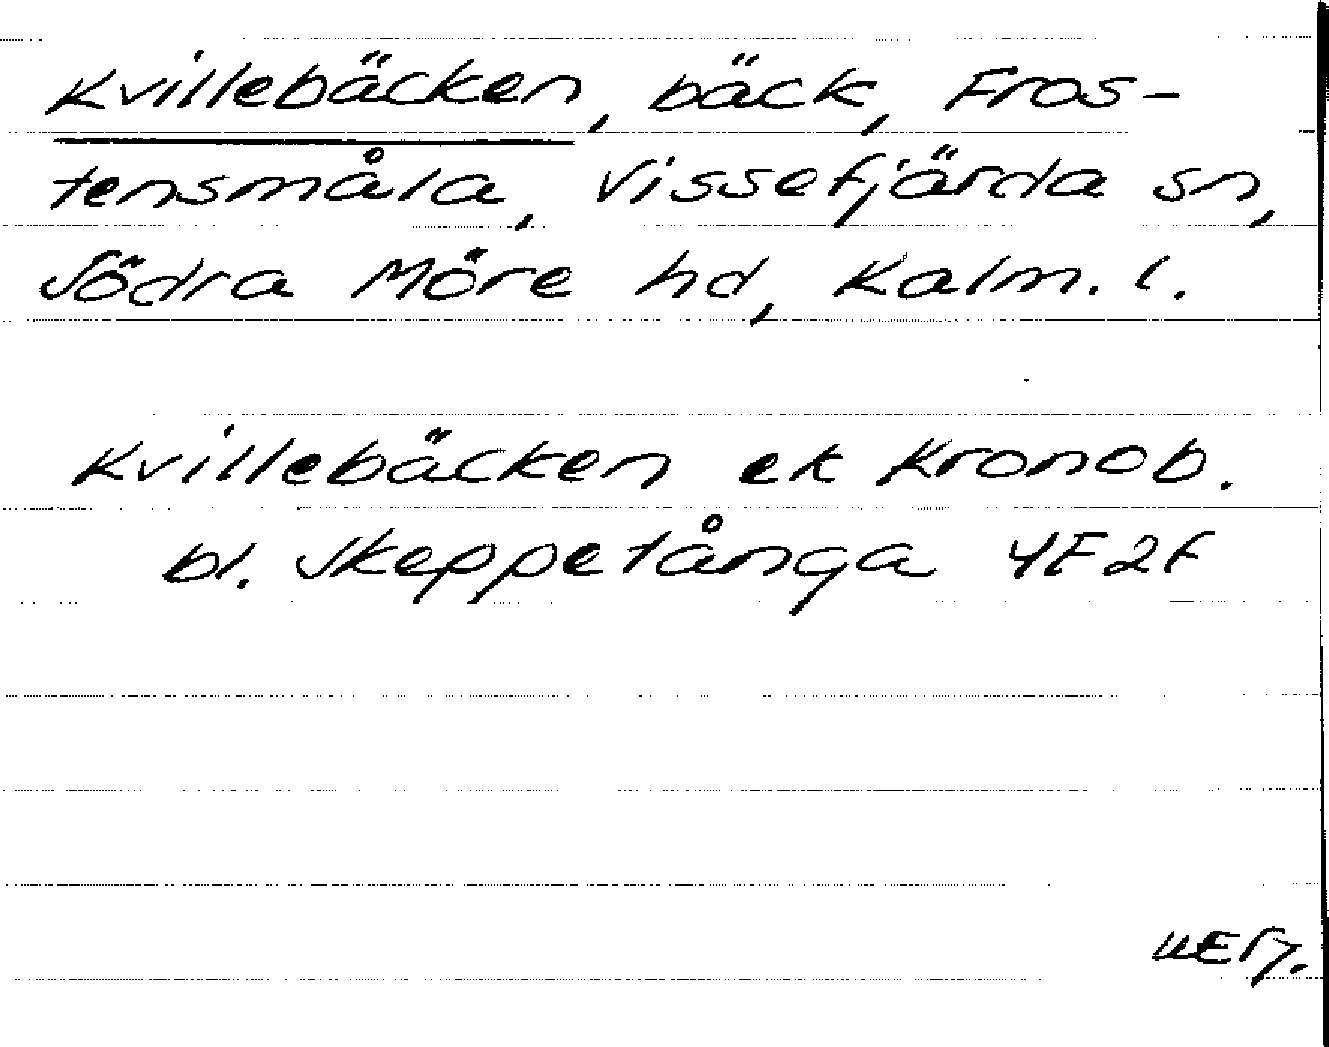 Kvillebäcken, bäck, Fros-
tensmåla, Vissefjärda sn,
Södra Möre hd, Kalm. l.
Kvillebäcken ek Kronob.
bl. Skeppetånga 4F2f